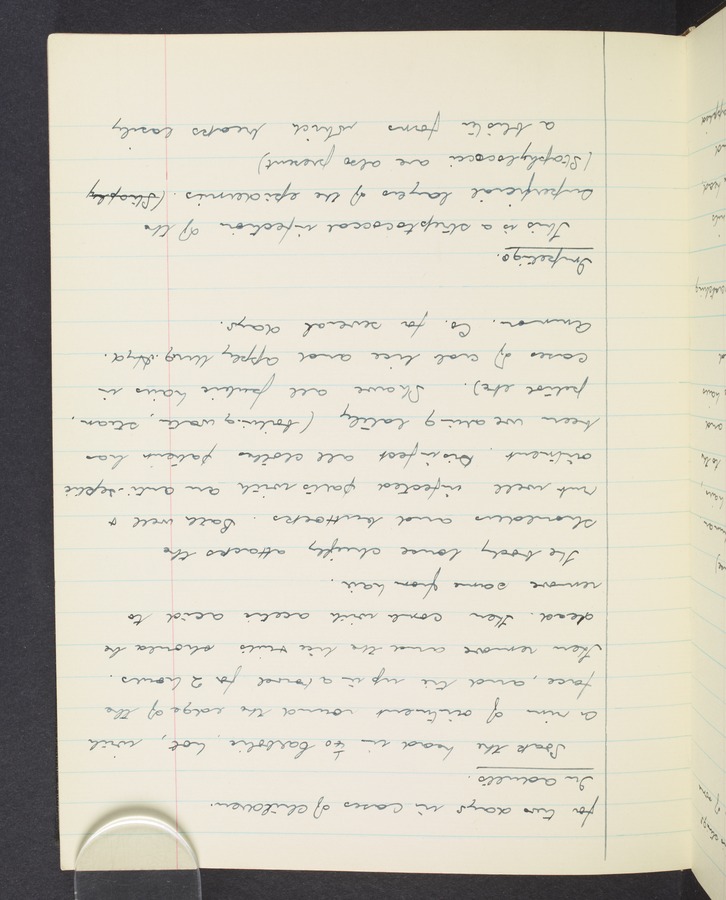 for two days in cases of children.
In adults.
Soak the head in 1/40 Carbolic, hot, with
a rim of ointment round the edge of the
face, and tie up in a towel for 2 hours.
Then remove and the lice & nits should be
dead. Then comb with acetic acid to
remove same from hair.
The body louse chiefly attacks the
shoulders and buttocks. Bath well &
rub well infected parts with an anti-septic
ointment. Disinfect all clothes patient has
been wearing lately (boiling water, steam,
petrol etc). Shave all pubic hairs in
cases of crab lice and apply Ung. Hyd.
Ammon. Co. for several days.
Impetigo.
This is a streptococcal infection of the
superficial layers of the epidermis. (Staphy
(Staphylococci are also present)
a blister forms which breaks easily